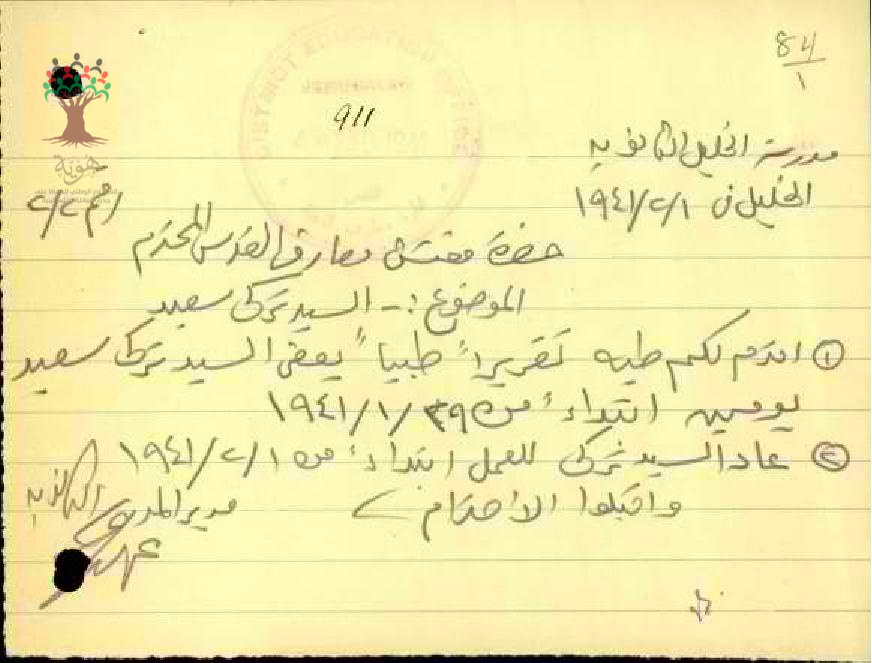 84
1
911
DISTRICT EDUCATION OFFICE
مدرسة الخليل الثانويه
الخليل في ١٩٤١/٢/١
رقم ٢/٢
هوية
حضرة مفتش معارف القدس المحترم
الموضوع :- السيد تركي سعيد
① اقدم لكم طيه تقريراً طبياً يعفي السيد تركي سعيد
يومين ابتداءً من ١٩٤١/١/٣٩
② عاد السيد تركي للعمل ابتداءً من ١٩٤١/٢/١
واقبلوا الاحترام
مدير المدرسة الثانويه